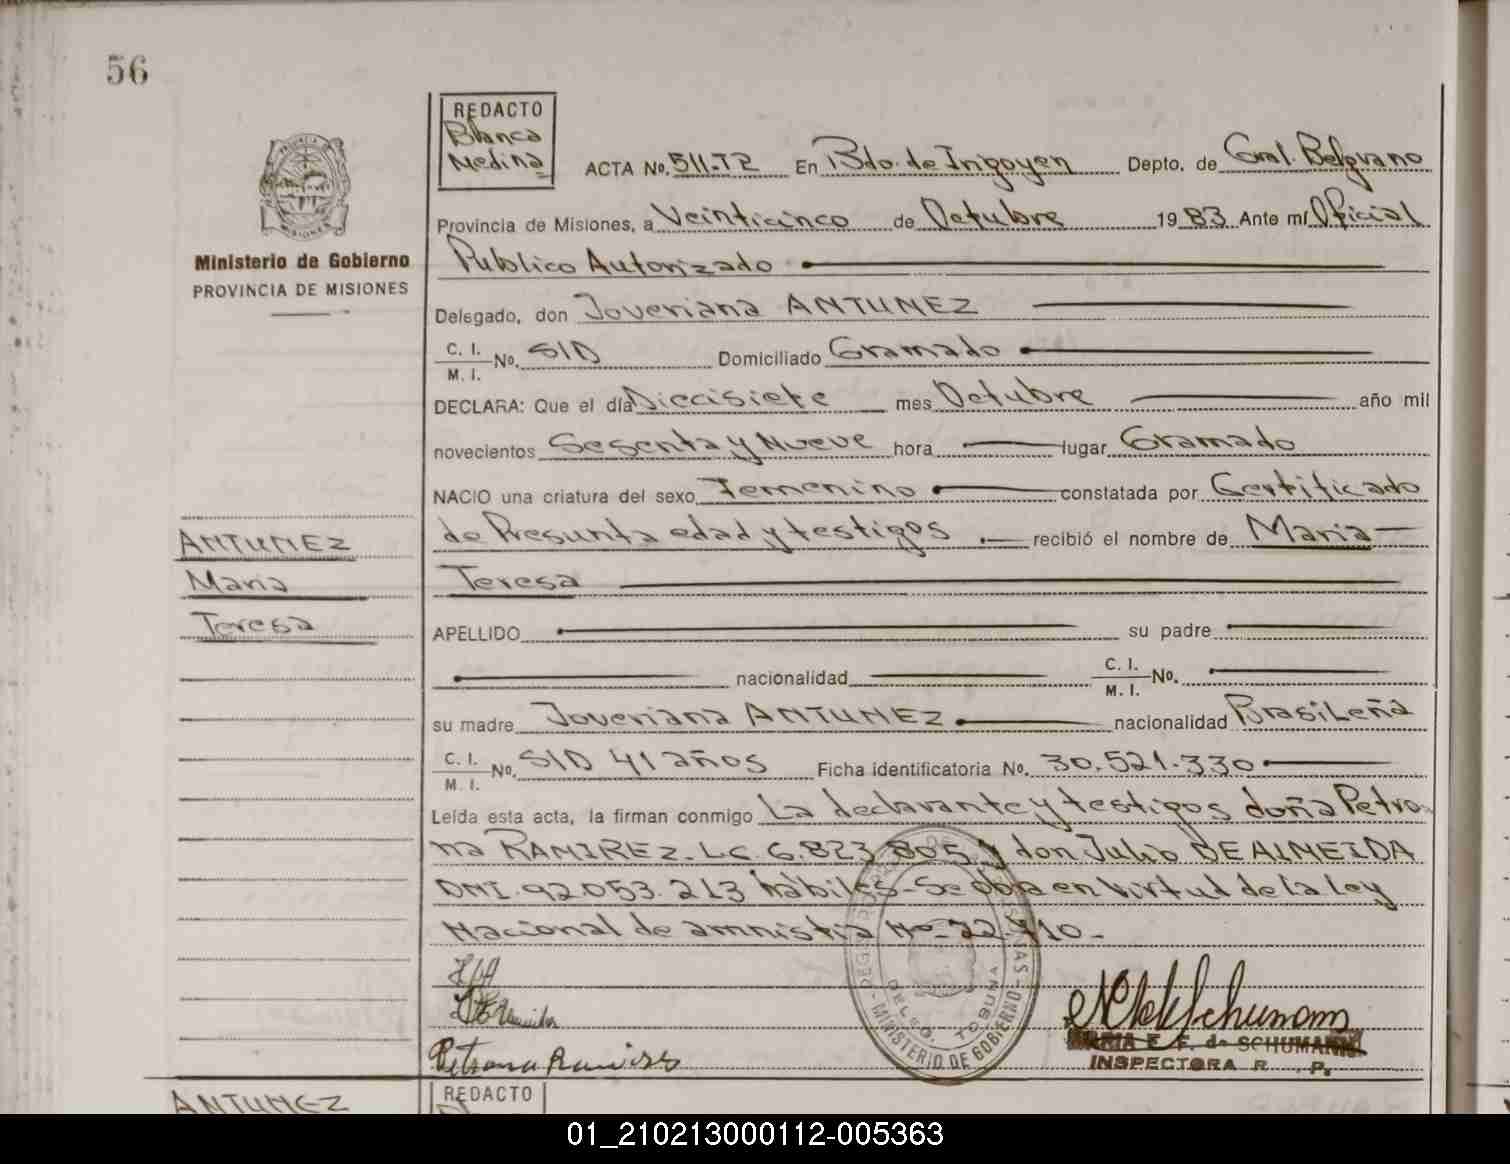 56
REDACTO
Blanca
Medina
ACTA No. 511-T2 En Bdo. de Irigoyen Depto. de Gral. Belgrano
Provincia de Misiones, a Veinticinco de Octubre 1983 Ante mí Oficial
Publico Autorizado
Ministerio de Gobierno
PROVINCIA DE MISIONES
Delegado, don Joveriana ANTUNEZ
C. I.
M. I. No. S/D Domiciliado Gramado
DECLARA: Que el día Diecisiete mes Octubre año mil
novecientos Sesenta y Nueve hora lugar Gramado
NACIO una criatura del sexo Femenino constatada por Certificado
de Presunta edad y testigos recibió el nombre de Maria
Teresa
ANTUNEZ
Maria
Teresa
APELLIDO su padre
nacionalidad C. I.
M. I. No.
su madre Joveriana ANTUNEZ nacionalidad Brasileña
C. I.
M. I. No. S/D 41 años Ficha identificatoria No. 30.521.330
Leída esta acta, la firman conmigo La declarante y testigos doña Petro
na RAMIREZ- LC. 6.823.805 y don Julio DE ALMEIDA
DNI. 92.053.213 hábiles- Se obra en virtud de la ley
Nacional de amnistia No- 22.410-
Petrona Ramires
MINISTERIO DE GOBIERNO
DELEG. TOBUNA
MARIA E. F. de SCHUMANN
INSPECTORA R. P.
ANTUNEZ
REDACTO
01_210213000112-005363